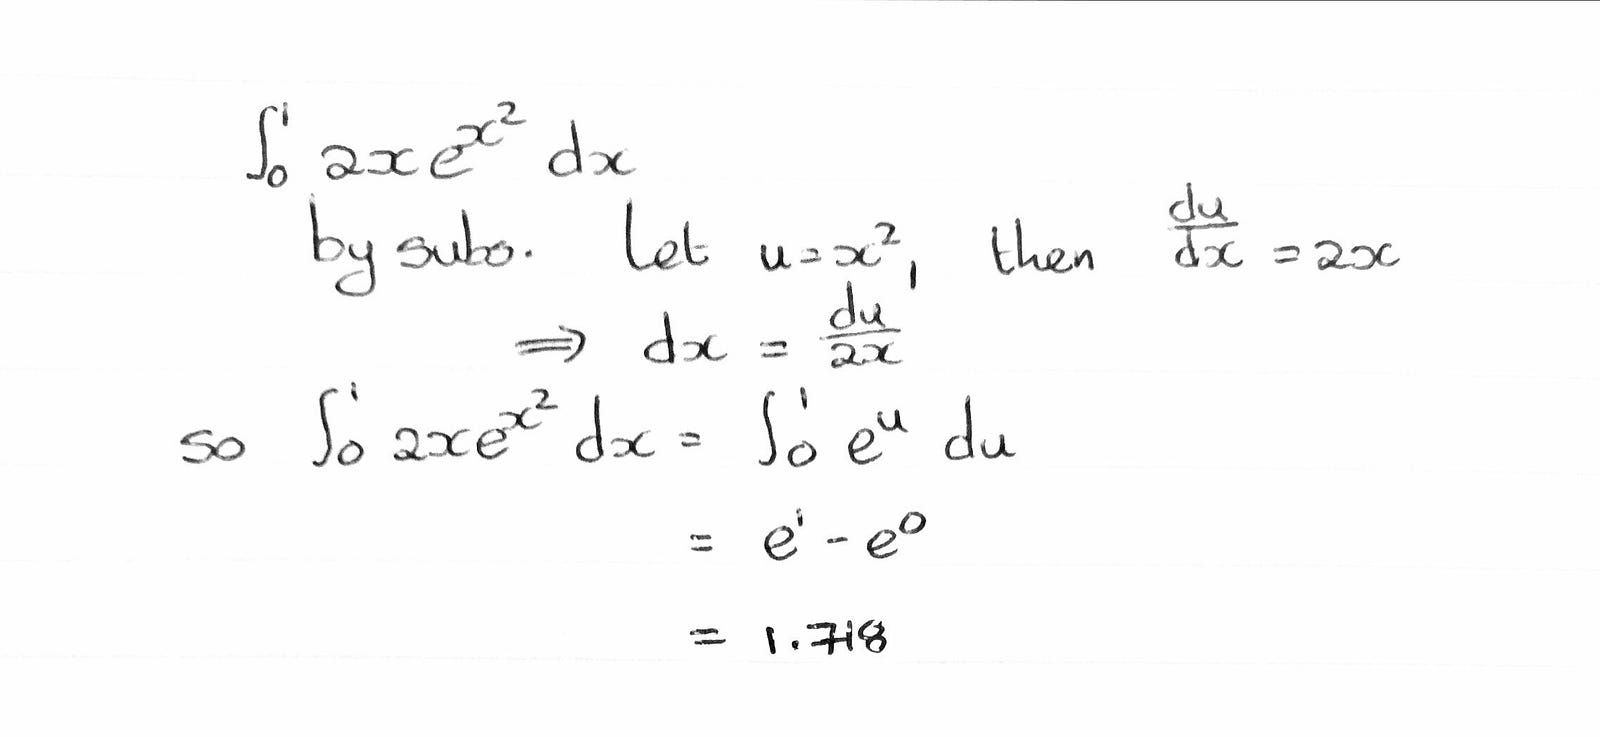 ∫₀¹ 2xe^{x²} dx
by subs. Let u=x², then du/dx = 2x
⇒ dx = du/2x
so ∫₀¹ 2xe^{x²} dx = ∫₀¹ e^u du
= e¹ - e⁰
= 1.718